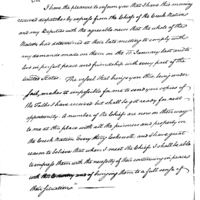 I have the pleasure to inform you that I have this morning
received dispatches by express from the Chiefs of the Creek Nation
and my Deputies with the agreeable news that the whole of the
Nation has determined at their late meeting to comply with
my demands made on them on the 7th January last and to
be in perfect peace and friendship with every part of the
United States. The express that brings you this, being under
makes it impossible for me to send you copies of
the Talks I have received but shall be got ready for next
opportunity. A number of the Chiefs are now on their way
to me at this place with all the prisoners and property in
the Creek Nation, every thing and I have great
reason to believe that when I meet the Chiefs I shall be able
to impress them with the necessity of their continuing in peace
with and of bringing them to a full sense of
their situation